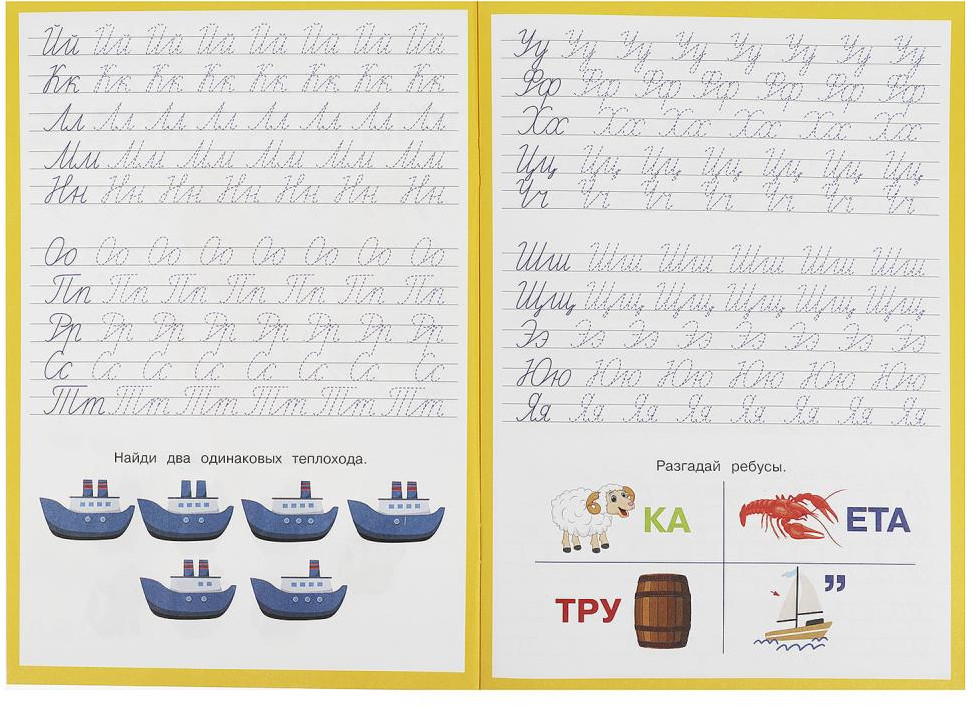 Йй Йй Йй Йй Йй Йй Йй Йй
Кк Кк Кк Кк Кк Кк Кк Кк
Лл Лл Лл Лл Лл Лл Лл Лл
Мм Мм Мм Мм Мм Мм
Нн Нн Нн Нн Нн Нн Нн
Оо Оо Оо Оо Оо Оо Оо Оо
Пп Пп Пп Пп Пп Пп Пп
Рр Рр Рр Рр Рр Рр Рр Рр
Сс Сс Сс Сс Сс Сс Сс Сс
Тт Тт Тт Тт Тт Тт
Найди два одинаковых теплохода.
Уу Уу Уу Уу Уу Уу Уу Уу
Фф Фф Фф Фф Фф Фф Фф
Хх Хх Хх Хх Хх Хх
Цц Цц Цц Цц Цц Цц Цц
Чч Чч Чч Чч Чч Чч Чч
Шш Шш Шш Шш Шш Шш
Щщ Щщ Щщ Щщ Щщ Щщ
Ээ Ээ Ээ Ээ Ээ Ээ Ээ Ээ
Юю Юю Юю Юю Юю Юю
Яя Яя Яя Яя Яя Яя Яя Яя
Разгадай ребусы.
КА
ЕТА
ТРУ
”